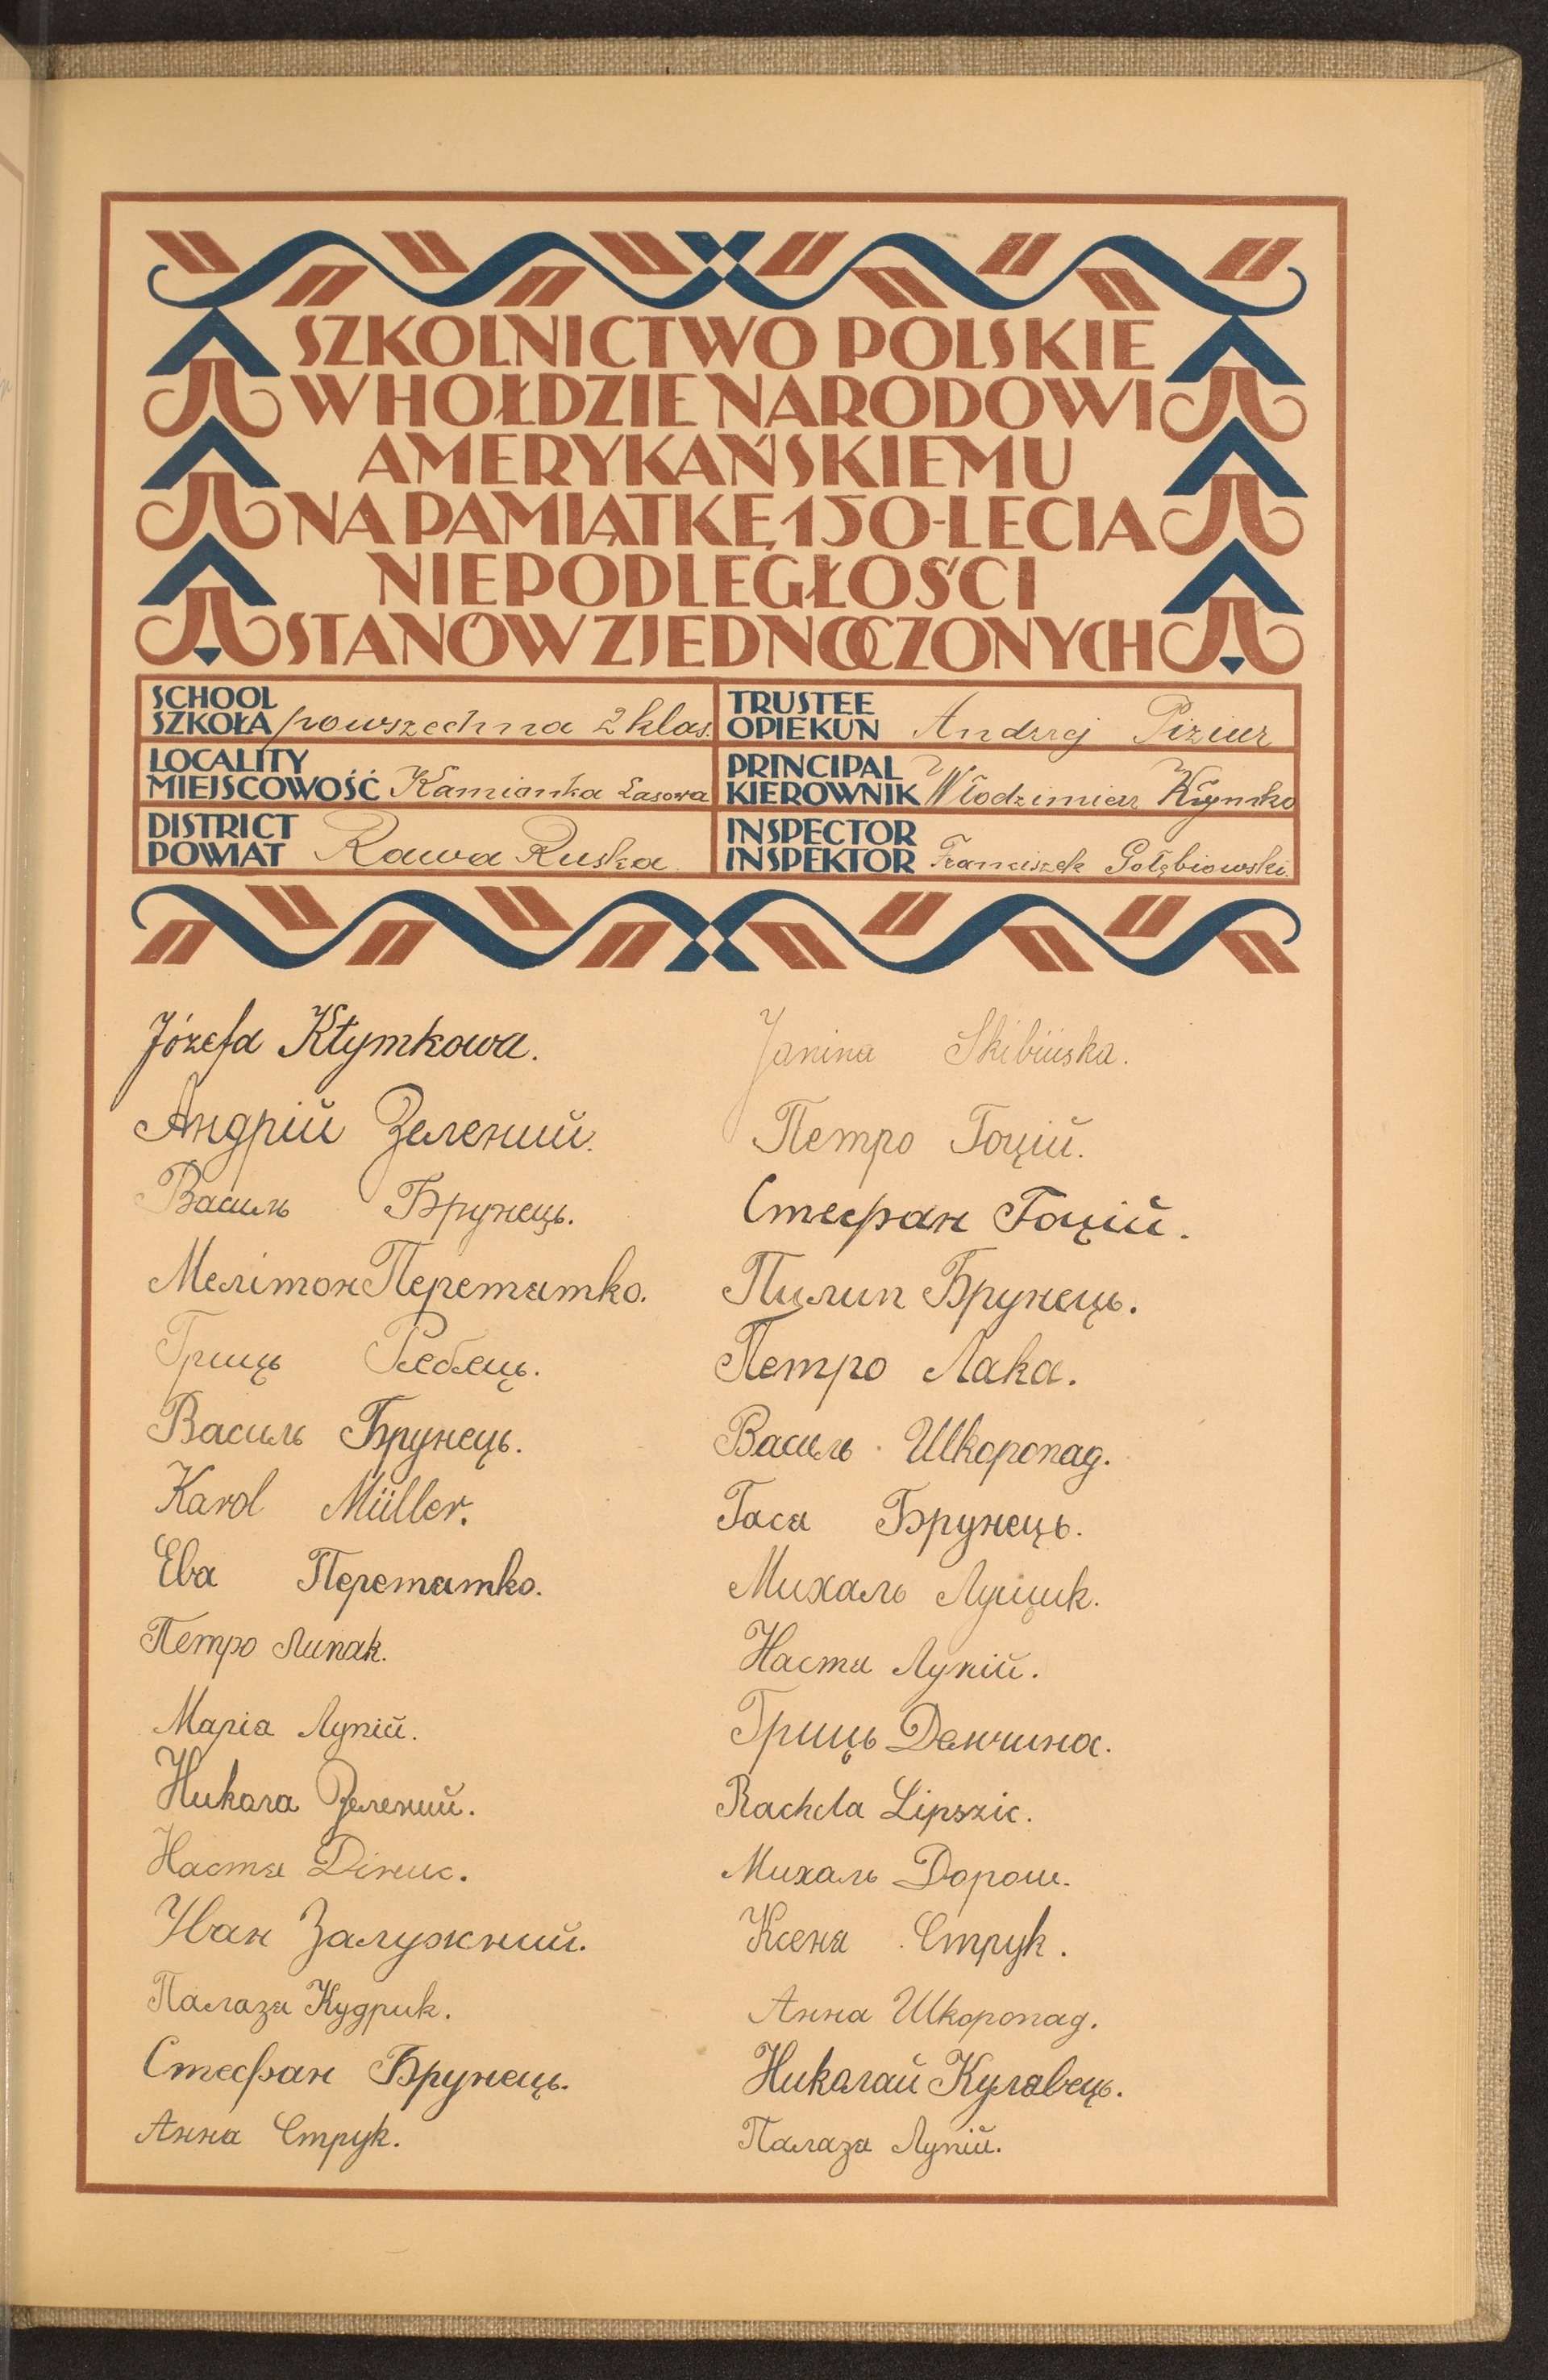 SZKOLNICTWO POLSKIE
W HOŁDZIE NARODOWI
AMERYKAŃSKIEMU
NA PAMIĄTKĘ 150-LECIA
NIEPODLEGŁOŚCI
STANÓW ZJEDNOCZONYCH
SCHOOL
SZKOŁA powszechna 2 klas.
LOCALITY
MIEJSCOWOŚĆ Kamionka Lasowa
DISTRICT
POWIAT Rawa Ruska
TRUSTEE
OPIEKUN Andrzej Piziur
PRINCIPAL
KIEROWNIK Włodzimierz
INSPECTOR
INSPEKTOR Franciszek Gołębiowski.
Józefa Kłymkowa.
Андрій Зелений.
Василь Брунець.
Мелітон Перетятко.
Гриць Ребець.
Василь Брунець.
Karol Müller.
Ева Перетятко.
Петро Липак.
Марія Лупій.
Никола Зелений.
Настя Дінис.
Иван Залужний.
Палазя Кудрик.
Стефан Брунець.
Анна Струк.
Janina Skibińska.
Петро Гоцій.
Стефан Гоцій.
Пилип Брунець.
Петро Лака.
Василь Шкоропад.
Гася Брунець.
Михаль Лущик.
Настя Лупій.
Гриць Демчина.
Rachela Lipszic.
Михаль Дорош.
Ксеня Струк.
Анна Шкоропад.
Николай Кулявець.
Палазя Лупій.